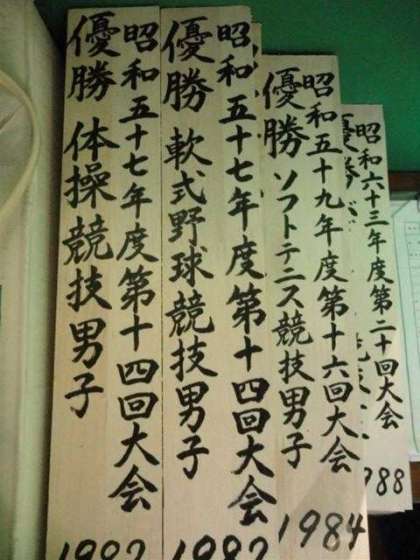 昭和五十七年度第十四回大会
優勝 体操競技男子
1982
昭和五十七年度第十四回大会
優勝 軟式野球競技男子
1982
昭和五十九年度第十六回大会
優勝 ソフトテニス競技男子
1984
昭和六十三年度第二十回大会
優勝
988